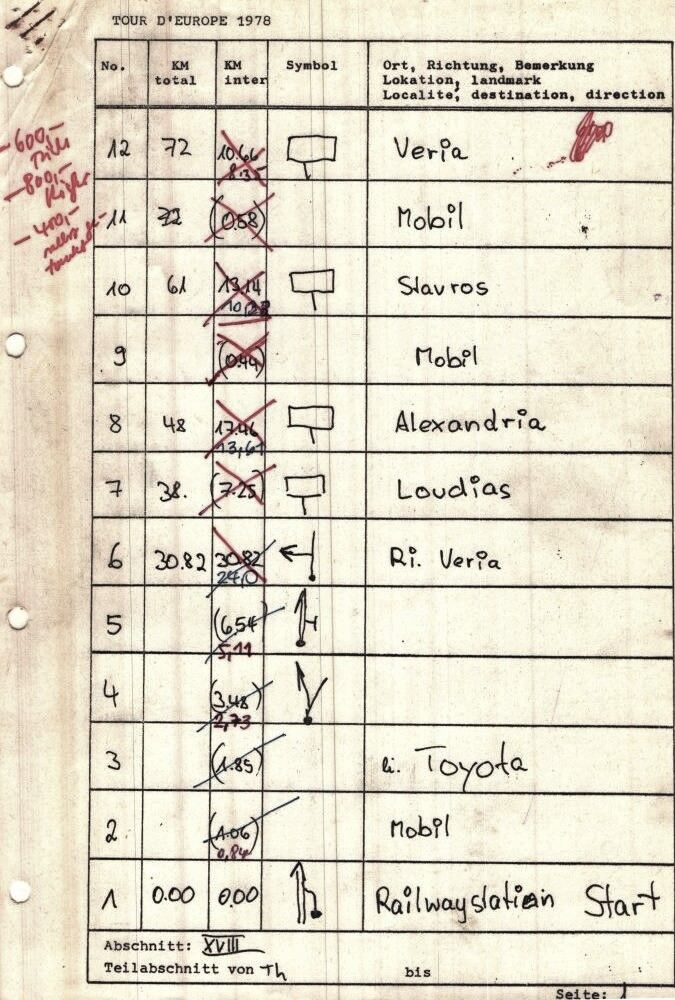 TOUR D'EUROPE 1978
No. KM total KM inter Symbol Ort, Richtung, Bemerkung
Lokation, landmark
Localite, destination, direction
-600,-
-800,-
-400,-
12 72 10.66 Veria
8.35
11 72 (0.58) Mobil
10 61 13,14 Stavros
9 (0.44) Mobil
8 48 17.46 Alexandria
13,61
7 38. (7.25) Loudias
6 30.82 30.82 Ri. Veria
24,0
5 (6.54)
5,11
4 (3.48)
2,73
3 (1.85) li. Toyota
2 (1.06) Mobil
0,84
1 0.00 0.00 Railwaystation Start
Abschnitt: XVIII
Teilabschnitt von Th bis
Seite: 1